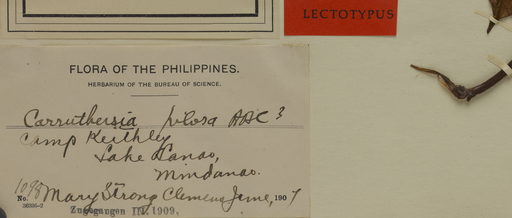 LECTOTYPUS
FLORA OF THE PHILIPPINES.
HERBARIUM OF THE BUREAU OF SCIENCE.
Carruthersia pilosa ADC 3
Camp Keithley
Lake Lanao,
Mindanao.
No. 1098 Mary Strong Clemens June, 1907
36336-2 Zugegangen III. 1909.